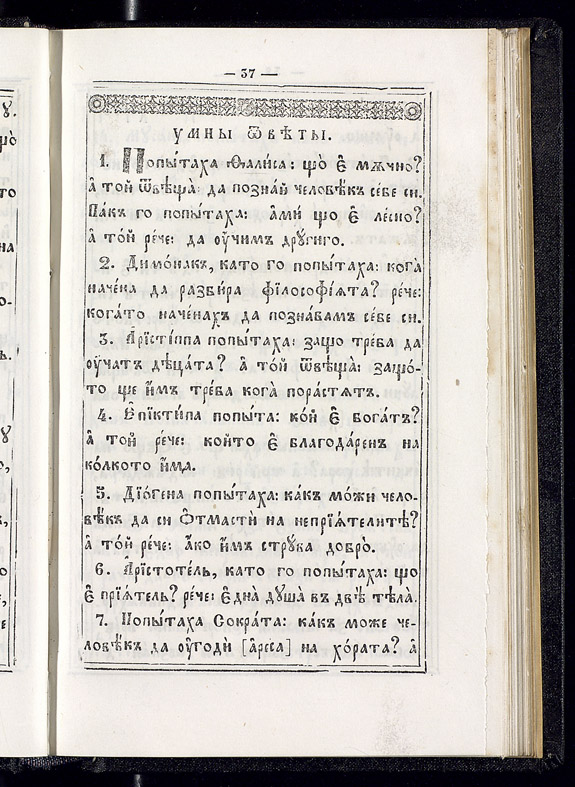 — 37 —
УМНЫ ѾВѢТЫ.
1. Попы́таха Ѳали́са: що̀ є҆̀ мѫ́чно?
а҆ то́й ѿвѣща̀: да позна́й человѣ́къ се́бе си.
Па́къ го попы́таха: а҆ми́ що є҆̀ ле́сно?
а҆ то́й ре́че: да оу҆́чимъ дрꙋ́гиго.
2. Димо́накъ, като го попы́таха: кога̀
наче́на да разби́ра фїлософі́ята? ре́че:
кога́то наче́нахъ да позна́вамъ се́бе си.
3. А҆рїсті́ппа попы́таха: защо тре́ба да
оу҆́чатъ дѣца́та? а҆ то́й ѿвѣща̀: защо́-
то ще и҆́мъ тре́ба кога̀ пора́стятъ.
4. Є҆пїкти́па попы́та: ко́й є҆̀ бога́тъ?
а҆ то́й ре́че: който є҆̀ благода́ренъ на
ко́лкото и҆́ма.
5. Дїо́гена попы́таха: ка́къ мо́жи чело-
вѣ́къ да си ѿмасти́ на непрїя́телитѣ?
а҆ то́й ре́че: а҆́ко и҆́мъ стрꙋ́ва добро̀.
6. А҆рїстоте́ль, като го попы́таха: що
є҆̀ прїя́тель? ре́че: є҆дна̀ дꙋша̀ въ двѣ̀ тѣла̀.
7. Попы́таха Сокра́та: ка́къ може че-
ловѣ́къ да оу҆годѝ [а҆реса] на хо́рата? а҆̀